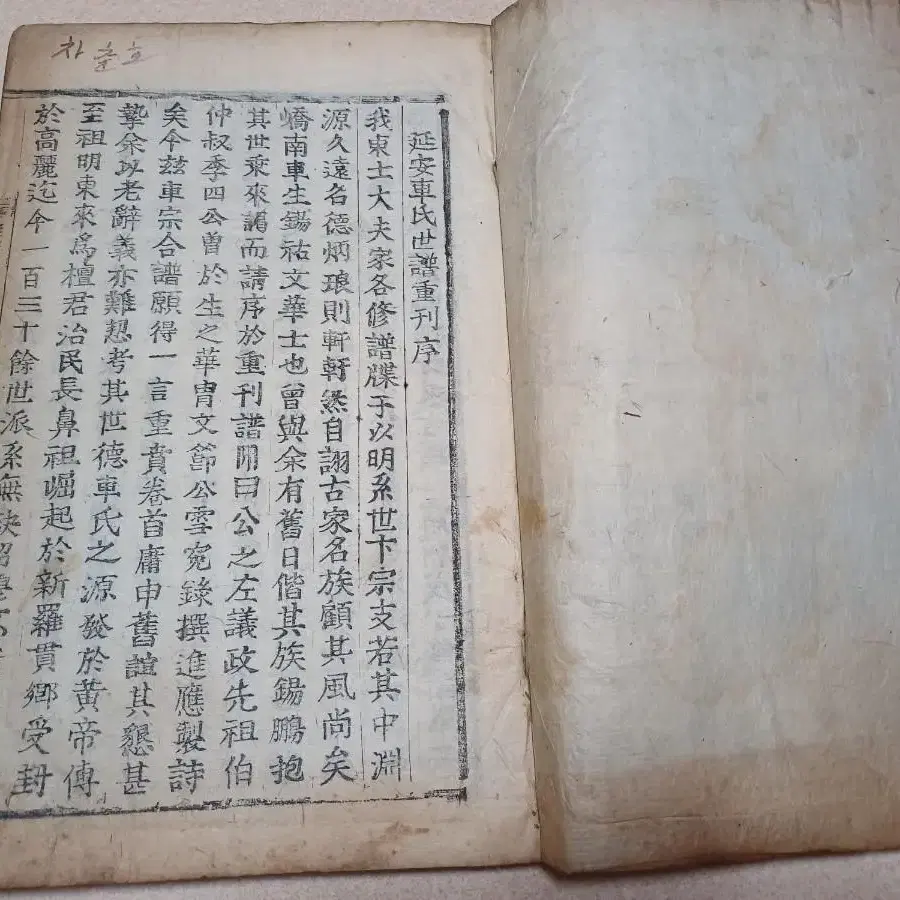 차윤호
延安車氏世譜重刊序
我東士大夫家各修譜牒于以明系世卞宗支若其中淵
源久遠名德炳琅則軒軒然自詡古家名族顧其風尚矣
嶠南車生鍚祜文華士也曾與余有舊日偕其族鍚鵬抱
其世乘來謁而請序於重刊譜開曰公之左議政先祖伯
仲叔季四公曾於生之華胄文節公雪寃錄撰進應製詩
矣今玆車宗合譜願得一言重賁卷首庸申舊誼其懇甚
摯余以老辭義亦難恝考其世德車氏之源發於黃帝傳
至祖明東來爲檀君治民長鼻祖崛起於新羅貫鄉受封
於高麗迄今一百三十餘世派系無缺